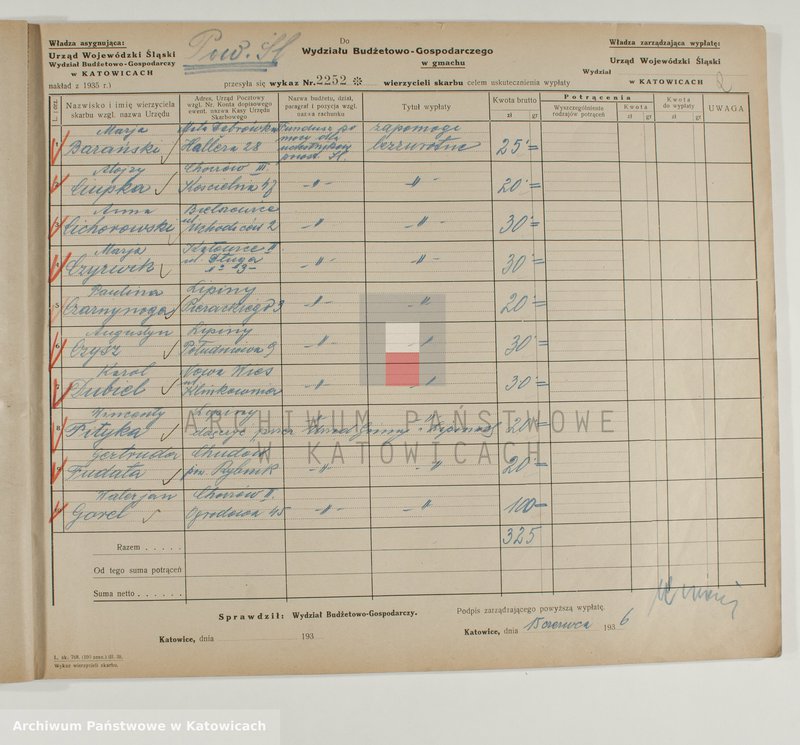 Władza asygnująca:
Urząd Wojewódzki Śląski
Wydział Budżetowo-Gospodarczy
w KATOWICACH
nakład z 1935 r.)
Pow. Śl
Do
Wydziału Budżetowo-Gospodarczego
w gmachu
przesyła się wykaz Nr. 2252 ※ wierzycieli skarbu celem uskutecznienia wypłaty
Władza zarządzająca wypłatę:
Urząd Wojewódzki Śląski
Wydział
w KATOWICACH
2
L. bież.
Nazwisko i imię wierzyciela skarbu wzgl. nazwa Urzędu
Adres, Urząd Pocztowy wzgl. Nr. Konta dopisowego ewent. nazwa Kasy Urzędu Skarbowego
Nazwa budżetu, dział, paragraf i pozycja wzgl. nazwa rachunku
Tytuł wypłaty
Kwota brutto
zł gr
Potrącenia
Wyszczególnienie rodzajów potrąceń
Kwota
zł gr
Kwota do wypłaty
zł gr
UWAGA
Marja Mała Dąbrówka Fundusz po zapomogi
Barański Hallera 28 mocy dla bezzwrotne 25 =
Alojzy Chorzów III.
Ciupka Kościelna 47 -"- -"- 20 =
Anna Bielszowice
Cichorowski -"- -"- 30 =
Marja Katowice II
ul. Długa
No 13 -"- -"- 30 =
Paulina Lipiny
5 Czarnynoga Pierackiego 3 -"- -"- 20 =
Augustyn Lipiny
6 Czysz Południowa 9 -"- -"- 30 =
Karol Nowa Wieś
Dubiel Klinkowa -"- -"- 30 =
Wincenty Lipiny
8 Fityka przez Urząd Gminy w Lipinach 20 =
Gertruda Chudów
Fudala pow. Rybnik -"- -"- 20 =
Walerjan Chorzów II.
Gorel Ogrodowa 45 -"- -"- 100 -
Razem . . . . . 325
Od tego suma potrąceń
Suma netto . . . . . .
Sprawdził: Wydział Budżetowo-Gospodarczy.
Podpis zarządzającego powyższą wypłatę.
Katowice, dnia 193
Katowice, dnia 15 czerwca 193 6
Wykaz wierzycieli skarbu.
ARCHIWUM PAŃSTWOWE
W KATOWICACH
Archiwum Państwowe w Katowicach